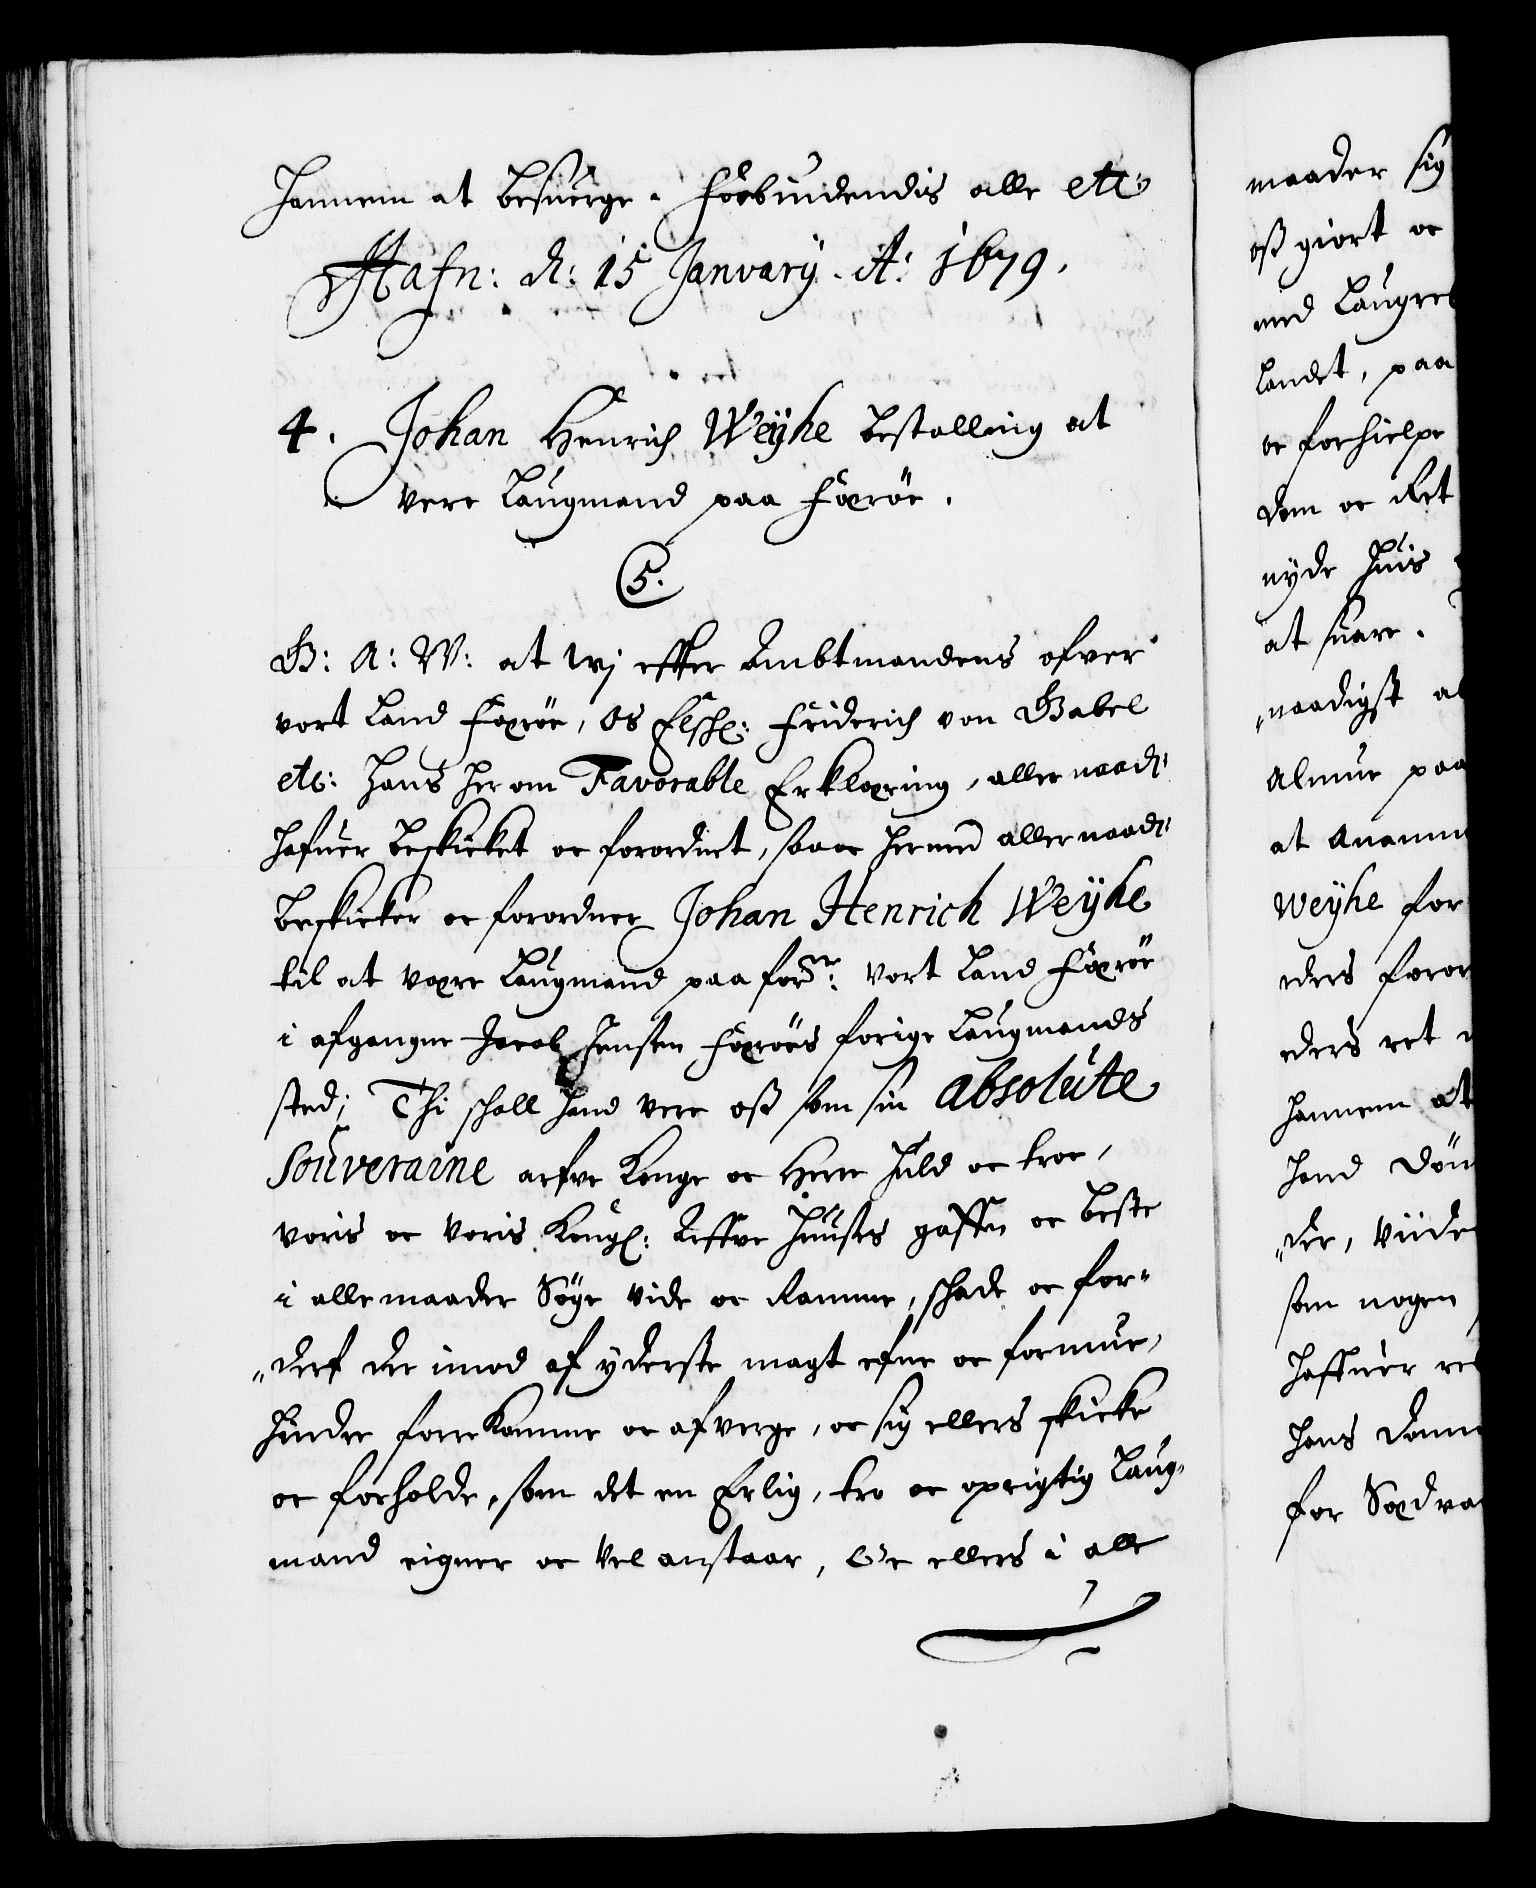 hannem at besuerge. Forbiudendis alle etc:
Hafn: d: 15 January. A: 1679.
4. Johan Henrich Weyhe bestalling at
vere Laugmand paa Færöe.
C5.
G: A: W: at wj effter Ambtmandens ofver
vort Land Færöe, Os Elschl: Friderich von Gabel
etc: hans her om Favorable Erklæring, aller naadr:
hafuer beskicket oc forordnet, saa oc hermed aller naadr:
beskicker oc forordner Johan Henrich Weyhe
til at være Laugmand paa forne: vort Land Færöe
i afgangne Jacob Jensen Færöes forige Laugmands
sted; Thi schall hand vere oß som sin absolute
Souveraine arfve Konge oc Herre huld oc troe,
voris oc voris Kongl: Arffve Huuses gaffn oc beste
i alle maader Söge vide oc Ramme, schade oc for-
derf der imod af yderste magt efne oc formue,
hindre forrekomme oc afverge, oc sig ellers skicke
oc forholde, som det en Erlig, tro oc oprigtig Laug-
mand eigner oc vel anstaar, Oc ellers i alle
maader sig
oß giort oc
med Laugret
Landet, paa
oc forhielpe
dom oc Ret
nyde huis
at suare.
naadigst al
Almue paa
at anamm
Weyhe for
eders foror
eders ret
hannem at
hand döm
der, viide
som nogen
haffuer re
hans domm
for Sædva